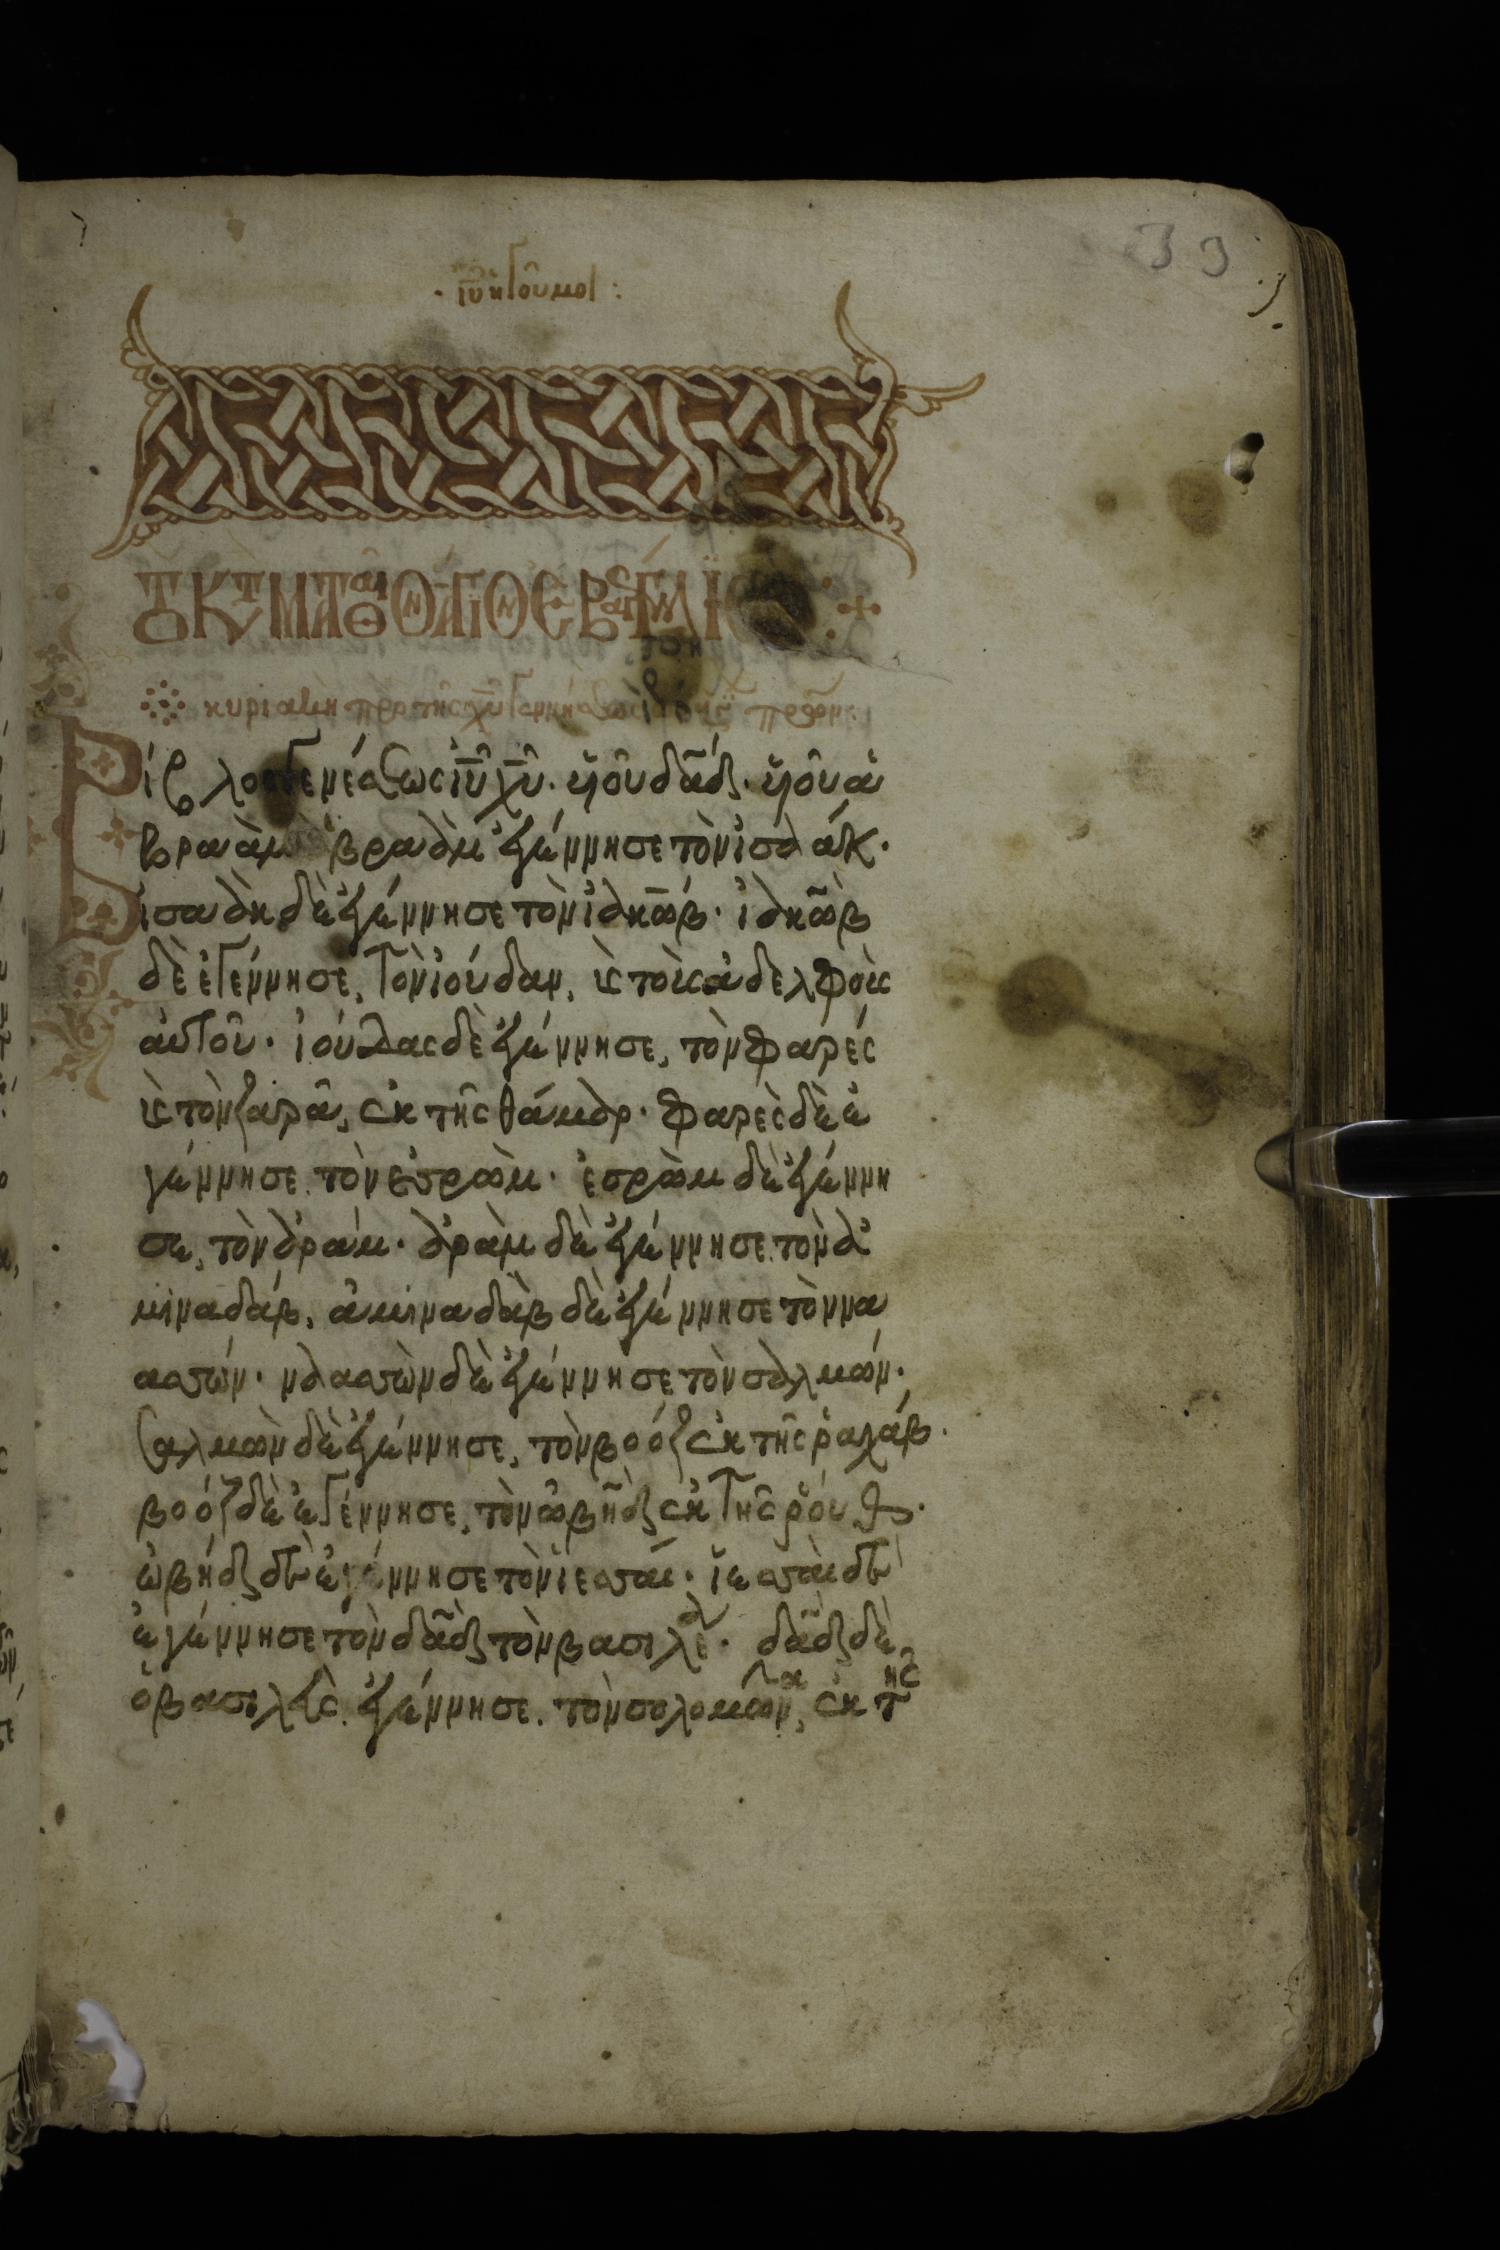 33
· ἰῡ ἡγοῦμοι :
ΤΟῦ ΚΤ ΜΑΤΘΑῖΟΝ ἉΓΙΟΝ ΕΥΑΓΓΕΛΙΟ
κυριακὴ πρὸ τῆς χῡ γεννήσεως
Βίβλος γενέσεως ἰῡ χῡ· υἱοῦ δᾱδ· υἱοῦ ἀ
βραάμ· ἀβραὰμ ἐγέννησε τὸν ἰσαάκ·
ἰσαὰκ δὲ ἐγέννησε τὸν ἰακὼβ· ἰακὼβ
δὲ ἐγέννησε, τὸν ἰούδαν, κ τοὺς ἀδελφοὺς
αὐτοῦ· ἰούδας δὲ ἐγέννησε, τὸν φαρές
κ τὸν ζαρᾶ, ἐκ τῆς θάμαρ· φαρὲς δὲ ἐ
γέννησε τὸν ἐσρώμ· ἐσρὼμ δὲ ἐγέννη
σε, τὸν ἀράμ· ἀρὰμ δὲ ἐγέννησε τὸν ἀ
μιναδάβ, ἀμιναδὰβ δὲ ἐγέννησε τὸν να
ασσών· ναασσὼν δὲ ἐγέννησε τὸν σαλμών·
Σαλμὼν δὲ ἐγέννησε, τὸν βοόζ ἐκ τῆς ῥαχάβ·
βοόζ δὲ ἐγέννησε, τὸν ὠβὴδ ἐκ τῆς ῥούθ·
ὠβήδ δὲ ἐγέννησε τὸν ἰεσσαί· ἰεσσαὶ δὲ
ἐγέννησε τὸν δᾱδ τὸν βασιλέα· δᾱδ δὲ
ὁ βασιλεὺς ἐγέννησε, τὸν σολομῶντα, ἐκ τῆς